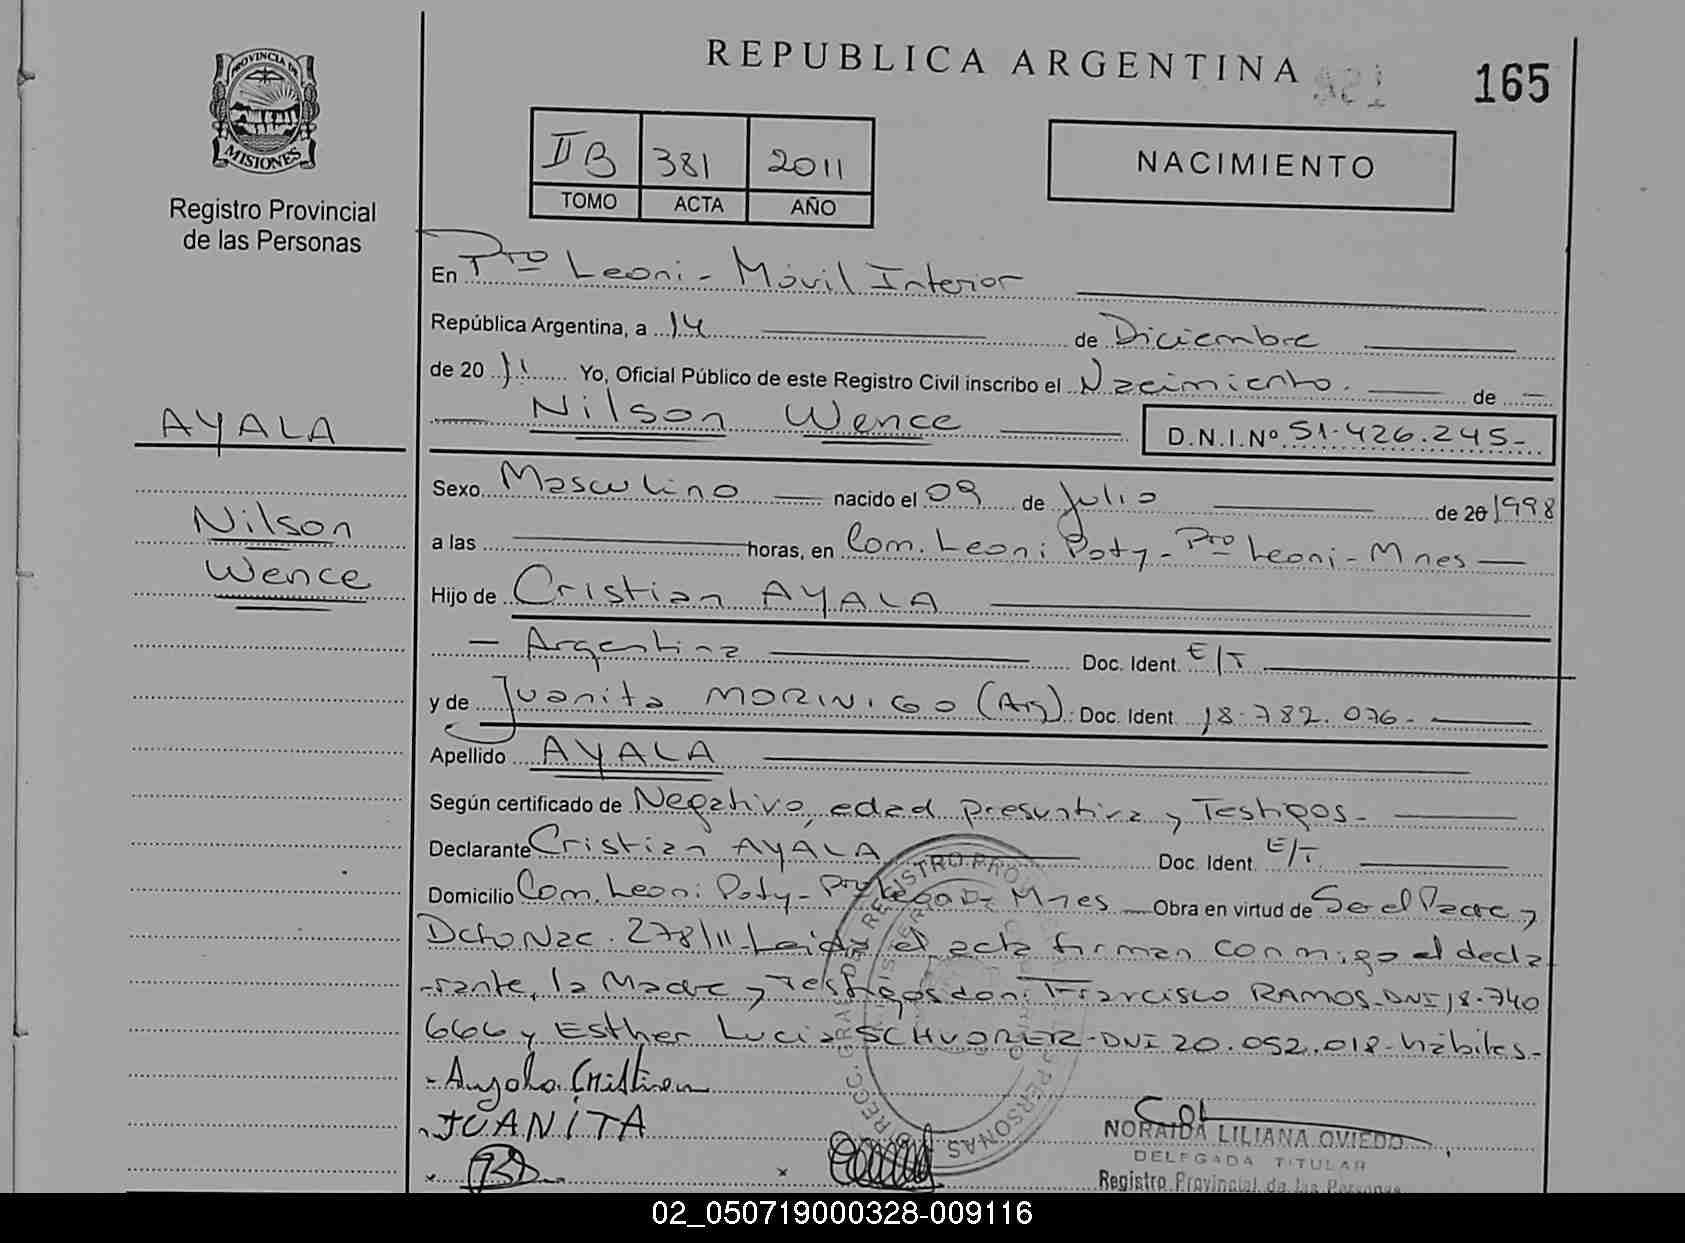 REPUBLICA ARGENTINA
165
PROVINCIA DE
MISIONES
Registro Provincial
de las Personas
II B 381 2011
TOMO ACTA AÑO
NACIMIENTO
En Pto Leoni - Móvil Interior
República Argentina, a 14 de Diciembre
de 20 11 Yo, Oficial Público de este Registro Civil inscribo el Nacimiento. de
Nilson Wence D.N.I.Nº 51.426.245-
AYALA
Nilson
Wence
Sexo Masculino nacido el 09 de Julio de 20 1998
a las horas, en Com. Leoni Poty - Pto Leoni - Mnes
Hijo de Cristian AYALA
- Argentina Doc. Ident. E/T
y de Juanita MORINIGO (Arg) Doc. Ident. 18.782.076-
Apellido AYALA
Según certificado de Negativo, edad presuntiva y Testigos-
Declarante Cristian AYALA Doc. Ident. E/T
Domicilio Com. Leoni Poty - Pto Mnes Obra en virtud de Ser el Padre y
Dcto Nac. 278/11- Leída el acta firman conmigo el decla
-rante, la Madre y Testigos don: Francisco RAMOS- DNI 18.740
666 y Esther Lucia SCHVORER- DNI 20.052.018- hábiles-
- Ayala Cristian
JUANITA
NORAIDA LILIANA OVIEDO
DELEGADA TITULAR
Registro Provincial de las Personas
02_050719000328-009116